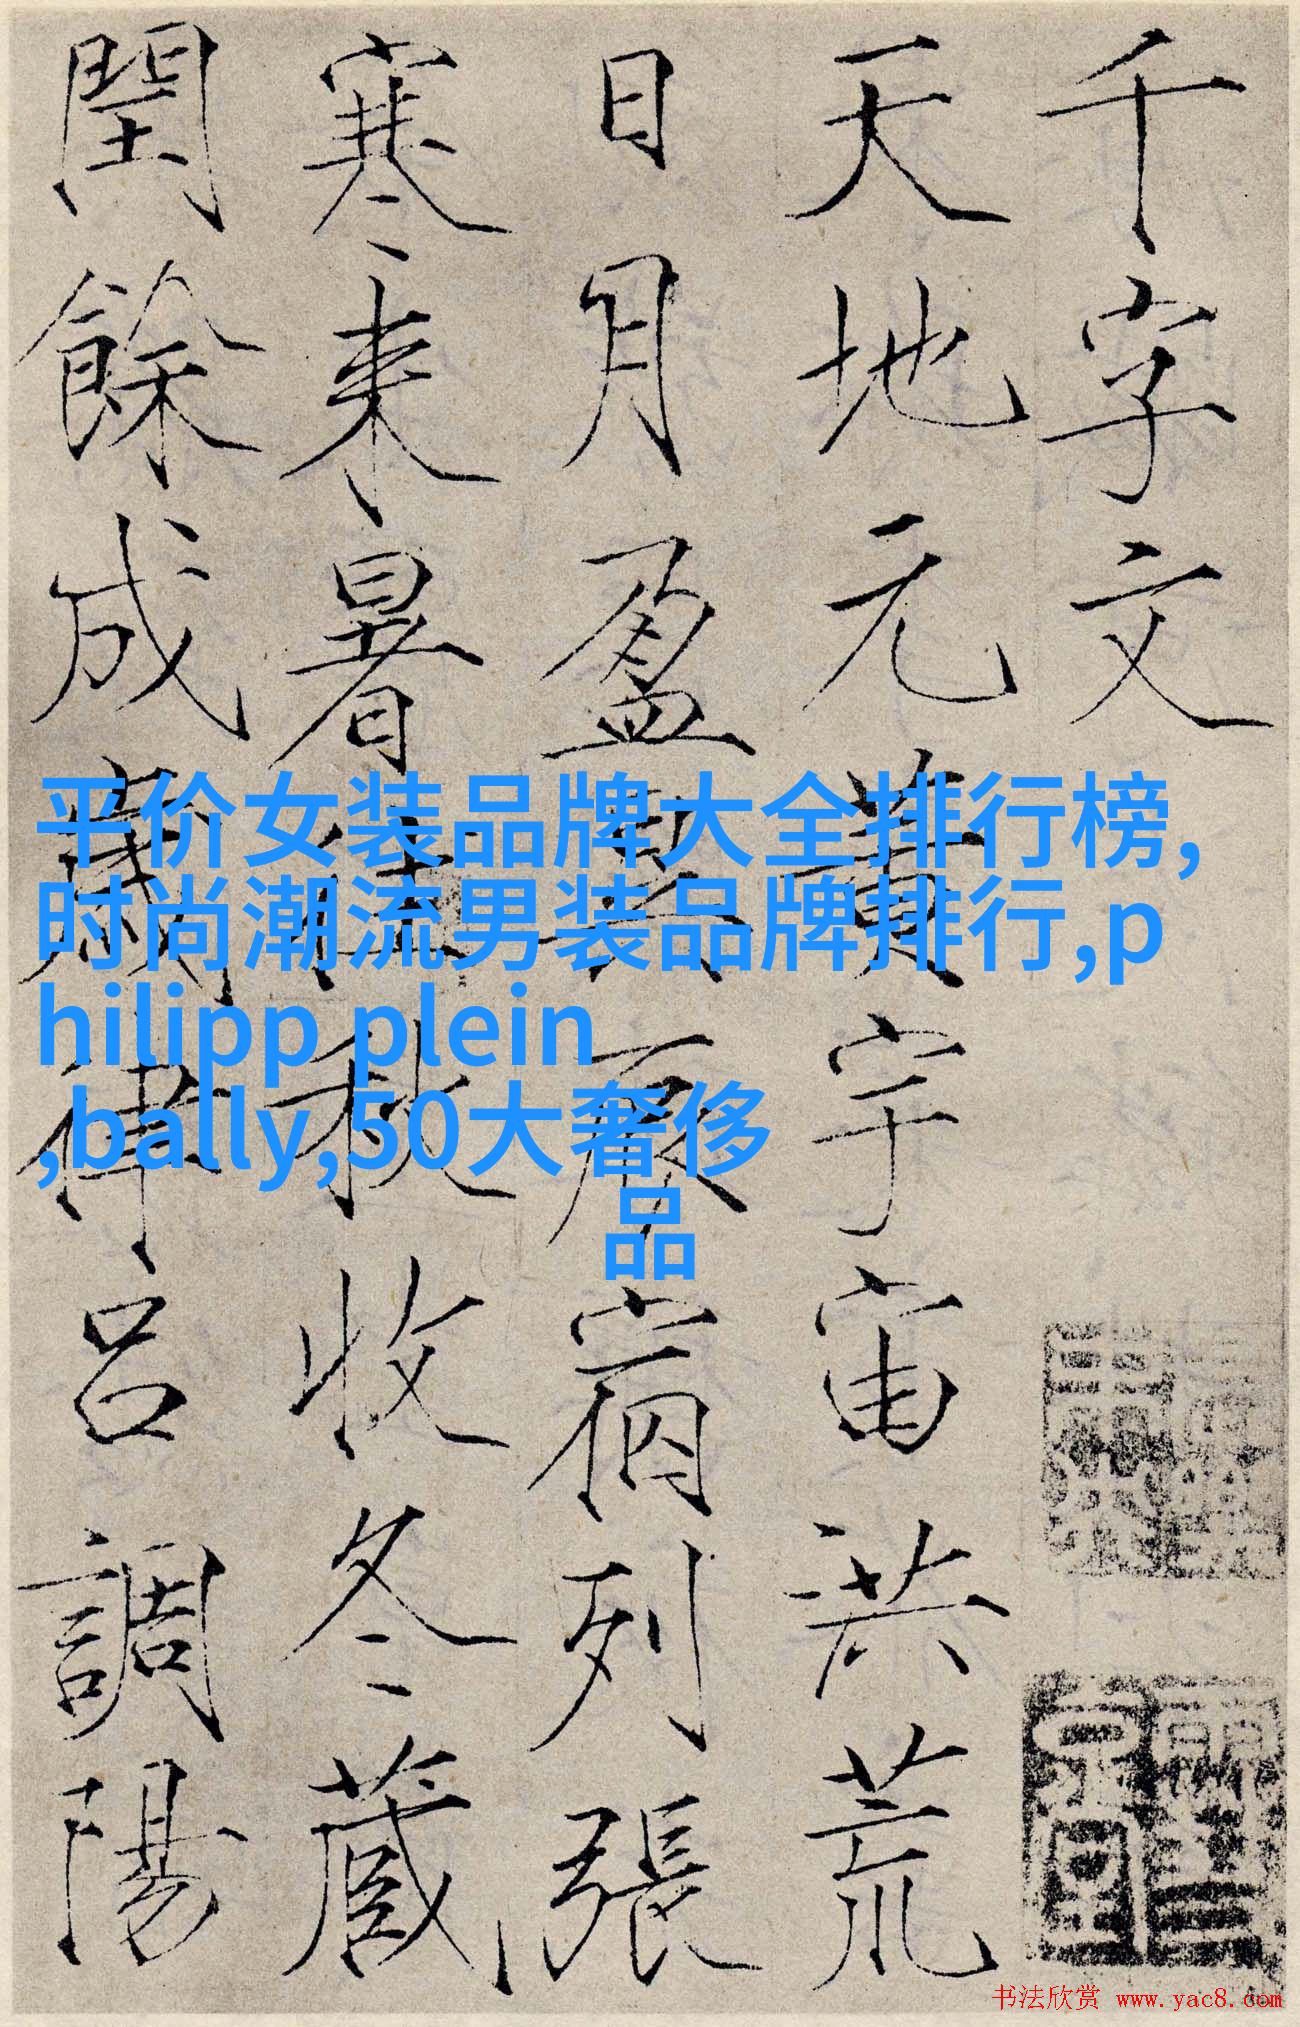 千字文
天地元黃宇宙洪荒
日月盈昃辰宿列張
寒来暑往秋收冬藏
閏餘成歲律呂調陽
平价女装品牌大全排行榜,
时尚潮流男装品牌排行,p
hilipp plein
,bally,50大奢侈
品
书法欣赏 www.yac8.com